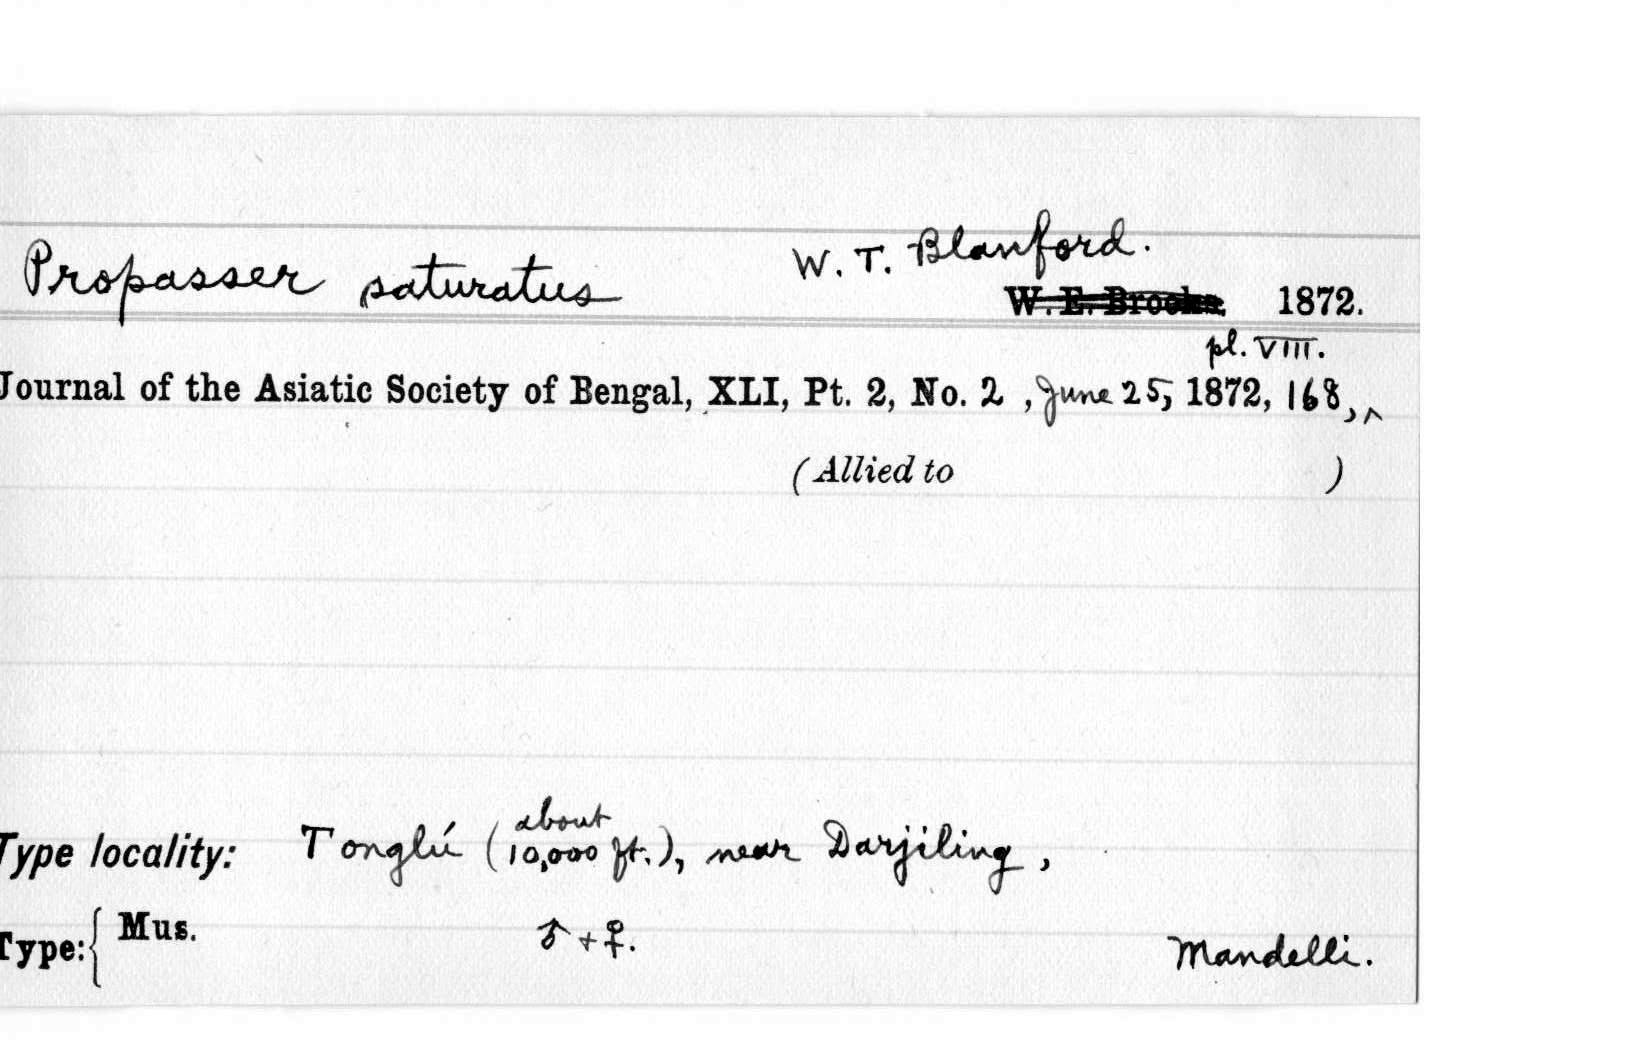 Propasser saturatus W. T. Blanford.
W. E. Brooks. 1872.
pl. VIII.
Journal of the Asiatic Society of Bengal, XLI, Pt. 2, No. 2, June 25, 1872, 168, ^
(Allied to )
about
Type locality: Tonglú (10,000 ft.), near Darjiling,
Type: { Mus. ♂ + ♀. Mandelli.